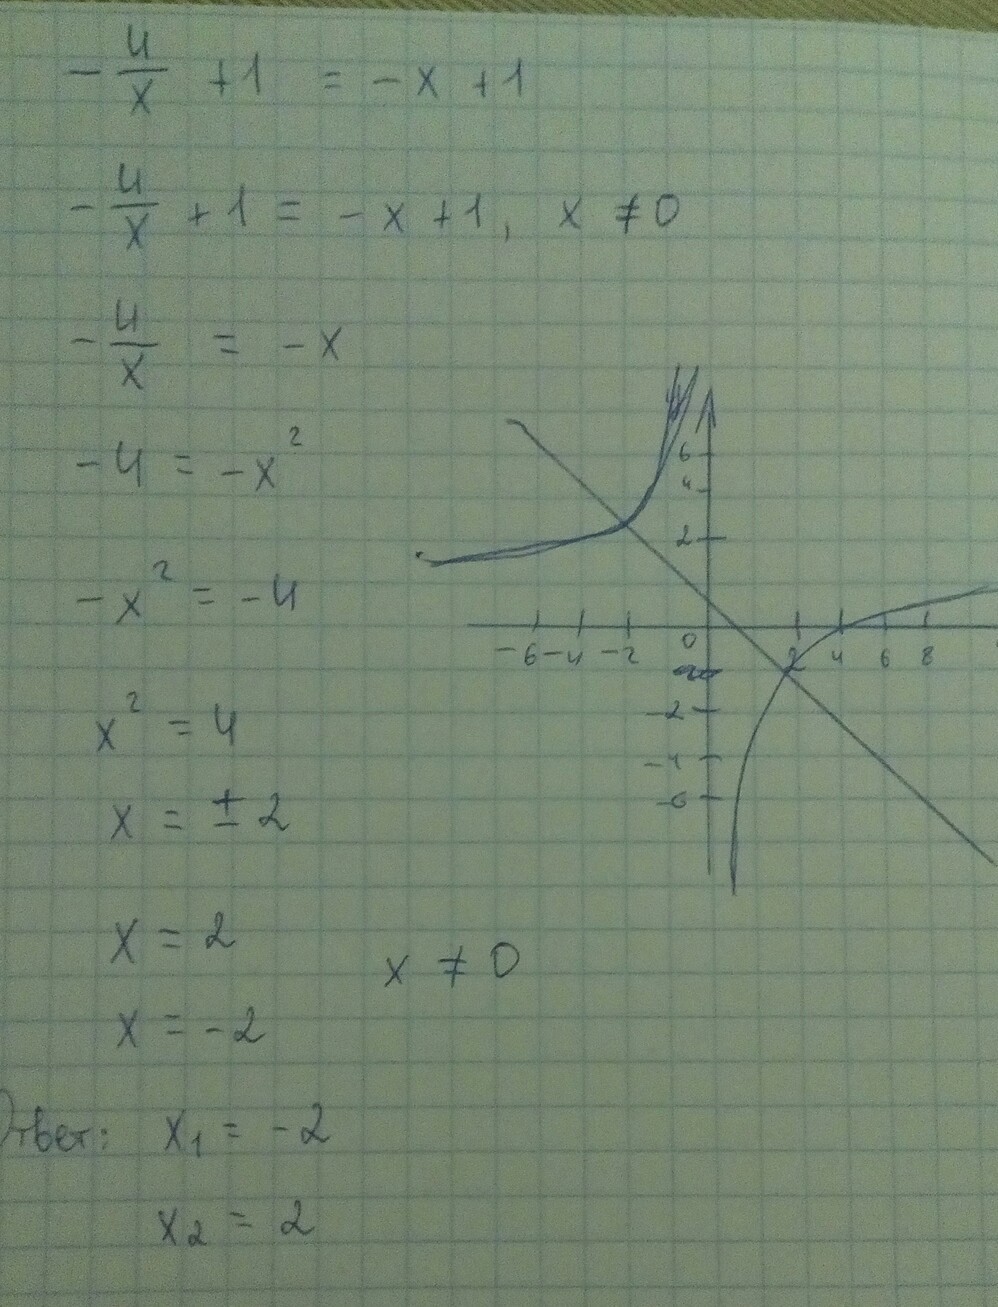 -4/x +1 = -x +1
-4/x +1 = -x +1, x ≠ 0
-4/x = -x
-4 = -x²
-x² = -4
x² = 4
x = ±2
x = 2
x ≠ 0
x = -2
Ответ: x₁ = -2
x₂ = 2
6
4
2
-6 -4 -2 0 2 4 6 8
-2
-4
-6